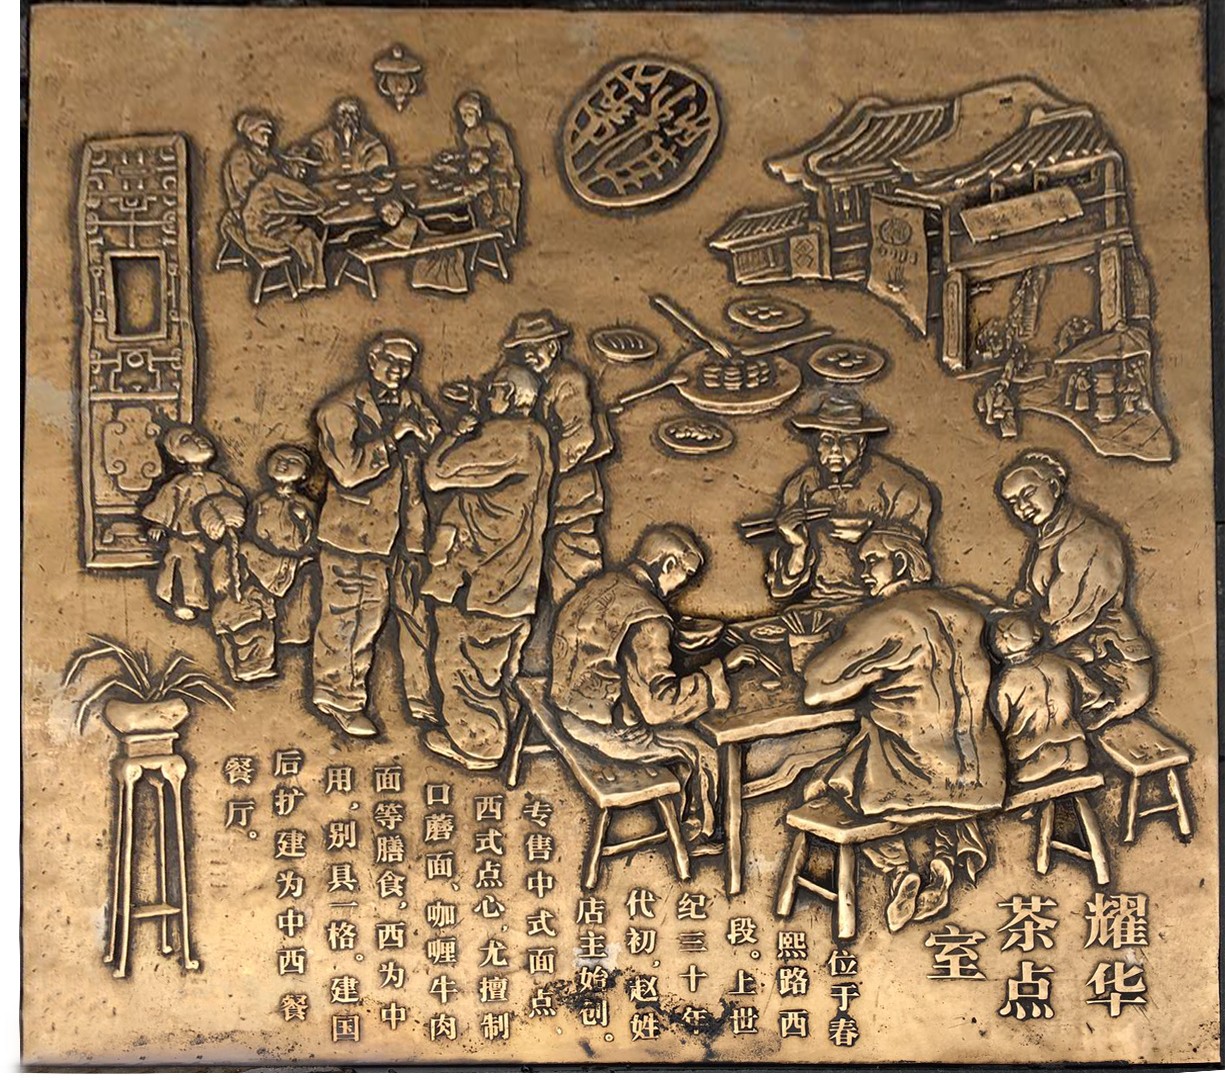 耀华
茶点
室
位于春
熙路西
段。上世
纪三十年
代初，赵姓
店主始创。
专售中式面点、
西式点心，尤擅制
口蘑面、咖喱牛肉
面等膳食，西为中
用，别具一格。建国
后扩建为中西餐
餐厅。